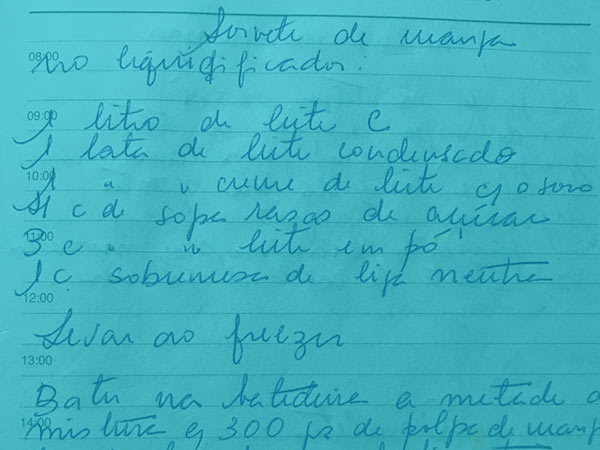 Sorvete de manga
08:00
no liquidificador:
09:00
1 litro de leite C
1 lata de leite condensado
10:00
1 " " creme de leite c/ o soro
4 c de sopa rasas de açúcar
11:00
3 c " " leite em pó
1 c. sobremesa de liga neutra
12:00
Levar ao freezer
13:00
Bater na batedeira a metade
14:00
mistura c/ 300 gs de polpa de manga